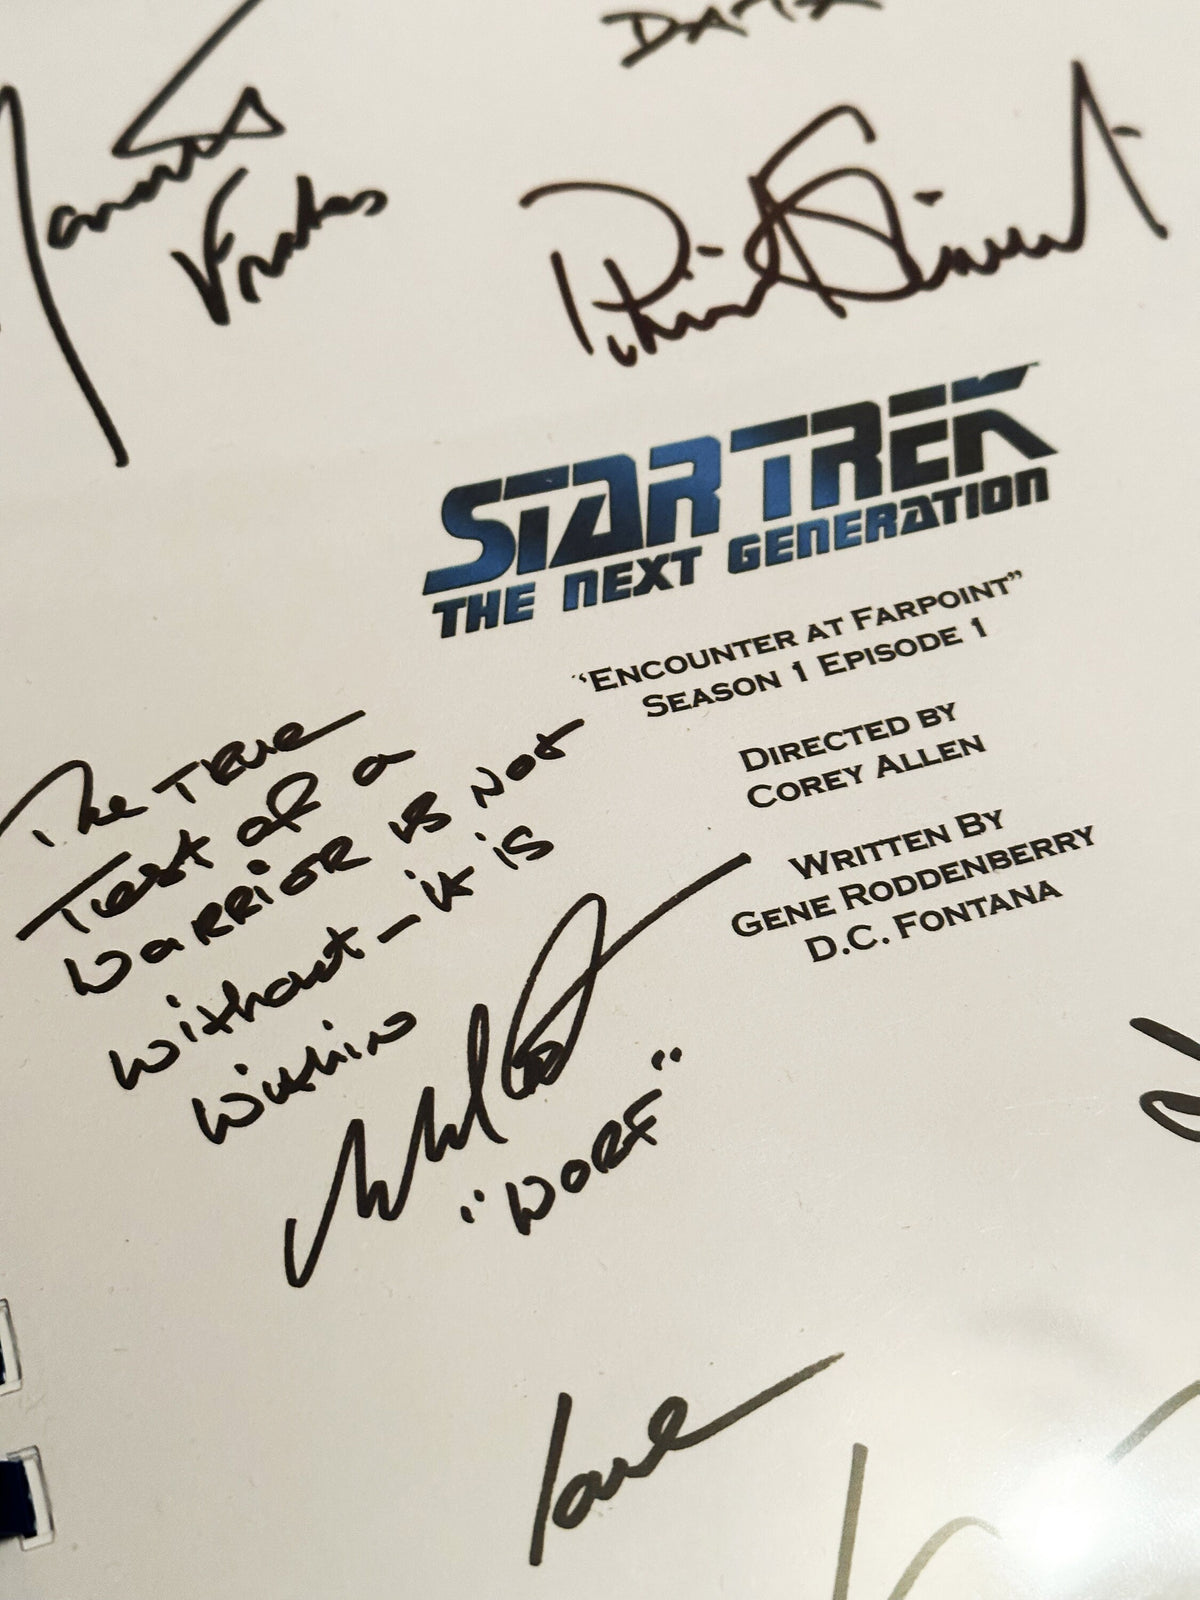 DATA
Jonathan
Frakes
Patrick Stewart
STAR TREK
THE NEXT GENERATION
"ENCOUNTER AT FARPOINT"
SEASON 1 EPISODE 1
DIRECTED BY
COREY ALLEN
WRITTEN BY
GENE RODDENBERRY
D.C. FONTANA
The TRUE
Test of a
WARRIOR is Not
Without - it is
Within
"WORF"